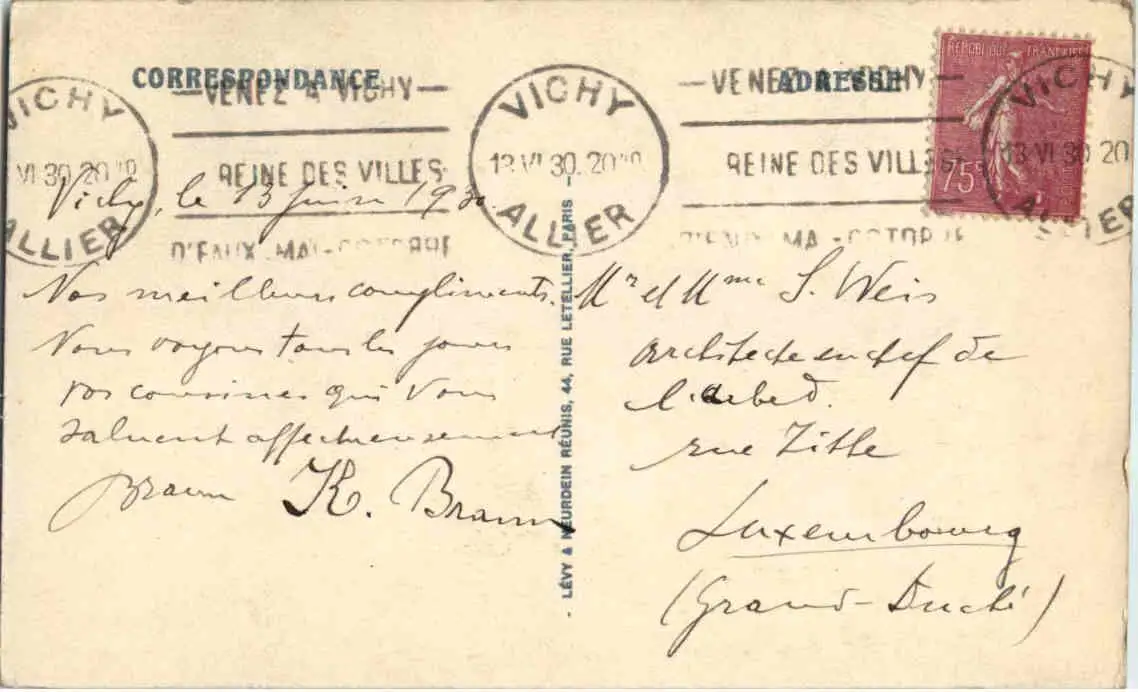 CORRESPONDANCE
ADRESSE
VICHY
VI 30 20
ALLIER
— VENEZ A VICHY —
REINE DES VILLES
D'EAUX MAI-OCTOBRE
VICHY
13 VI 30. 20
ALLIER
— VENEZ A VICHY —
REINE DES VILLES
D'EAUX MAI-OCTOBRE
VICHY
13 VI 30 20
ALLIER
REPUBLIQUE FRANÇAISE
75c
Vichy, le 13 Juin 1930.
Nos meilleurs compliments.
Nous voyons tous les jours
vos cousines qui vous
saluent affectueusement
Braun K. Braun
- LÉVY & NEURDEIN RÉUNIS, 44, RUE LETELLIER, PARIS -
Mr et Mme S. Weis
architecte en chef de
l'arbed.
rue Zithe
Luxembourg
(Grand-Duché)